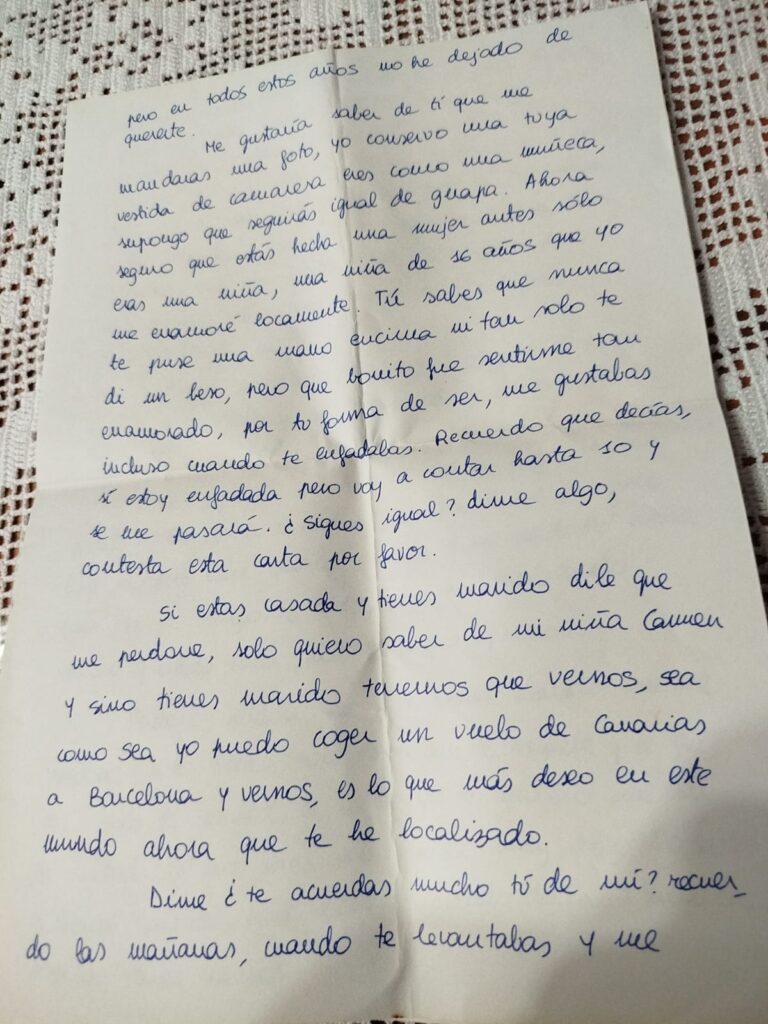 pero en todos estos años no he dejado de
quererte.
Me gustaría saber de tí que me
mandaras una foto, yo conservo una tuya
vestida de camarera eres como una muñeca,
supongo que seguirás igual de guapa. Ahora
seguro que estás hecha una mujer antes sólo
eras una niña, una niña de 16 años que yo
me enamoré locamente. Tú sabes que nunca
te puse una mano encima ni tan solo te
di un beso, pero que bonito fue sentirme tan
enamorado, por tu forma de ser, me gustabas
incluso cuando te enfadabas. Recuerdo que decías,
sí estoy enfadada pero voy a contar hasta 10 y
se me pasará. ¿Sigues igual? dime algo,
contesta esta carta por favor.
Si estas casada y tienes marido dile que
me perdone, solo quiero saber de mi niña Carmen
y sino tienes marido tenemos que vernos, sea
como sea yo puedo coger un vuelo de Canarias
a Barcelona y vernos, es lo que más deseo en este
mundo ahora que te he localizado.
Dime ¿te acuerdas mucho tú de mí? recuer_
do las mañanas, cuando te levantabas y me